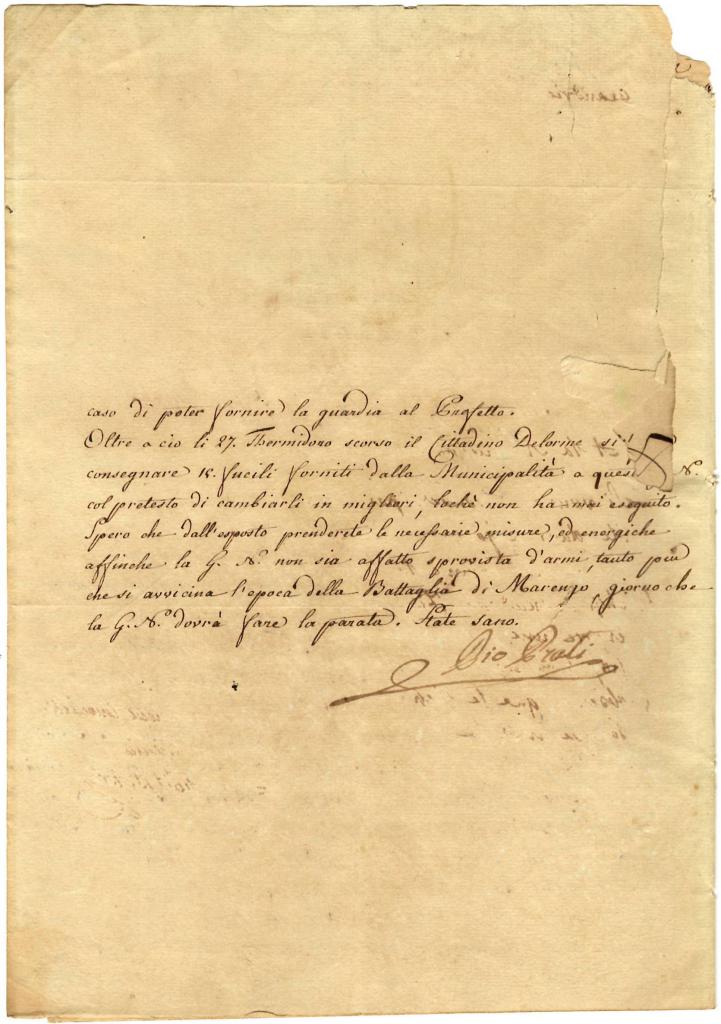 caso di poter fornire la guardia al Prefetto.
Oltre a cio li 27. Thermidoro scorso il Cittadino Delorme si
consegnare 15. fucili forniti dalla Municipalità a N.
col pretesto di cambiarli in migliori, lochè non ha mai eseguito.
Spero che dall'esposto prenderete le necessarie misure, ed energiche
affinche la G. N. non sia affatto sprovista d'armi tanto più
che si avvicina l'epoca della Battaglia di Marengo, giorno che
la G. N. dovrà fare la parata. State sano.
Dio Prati